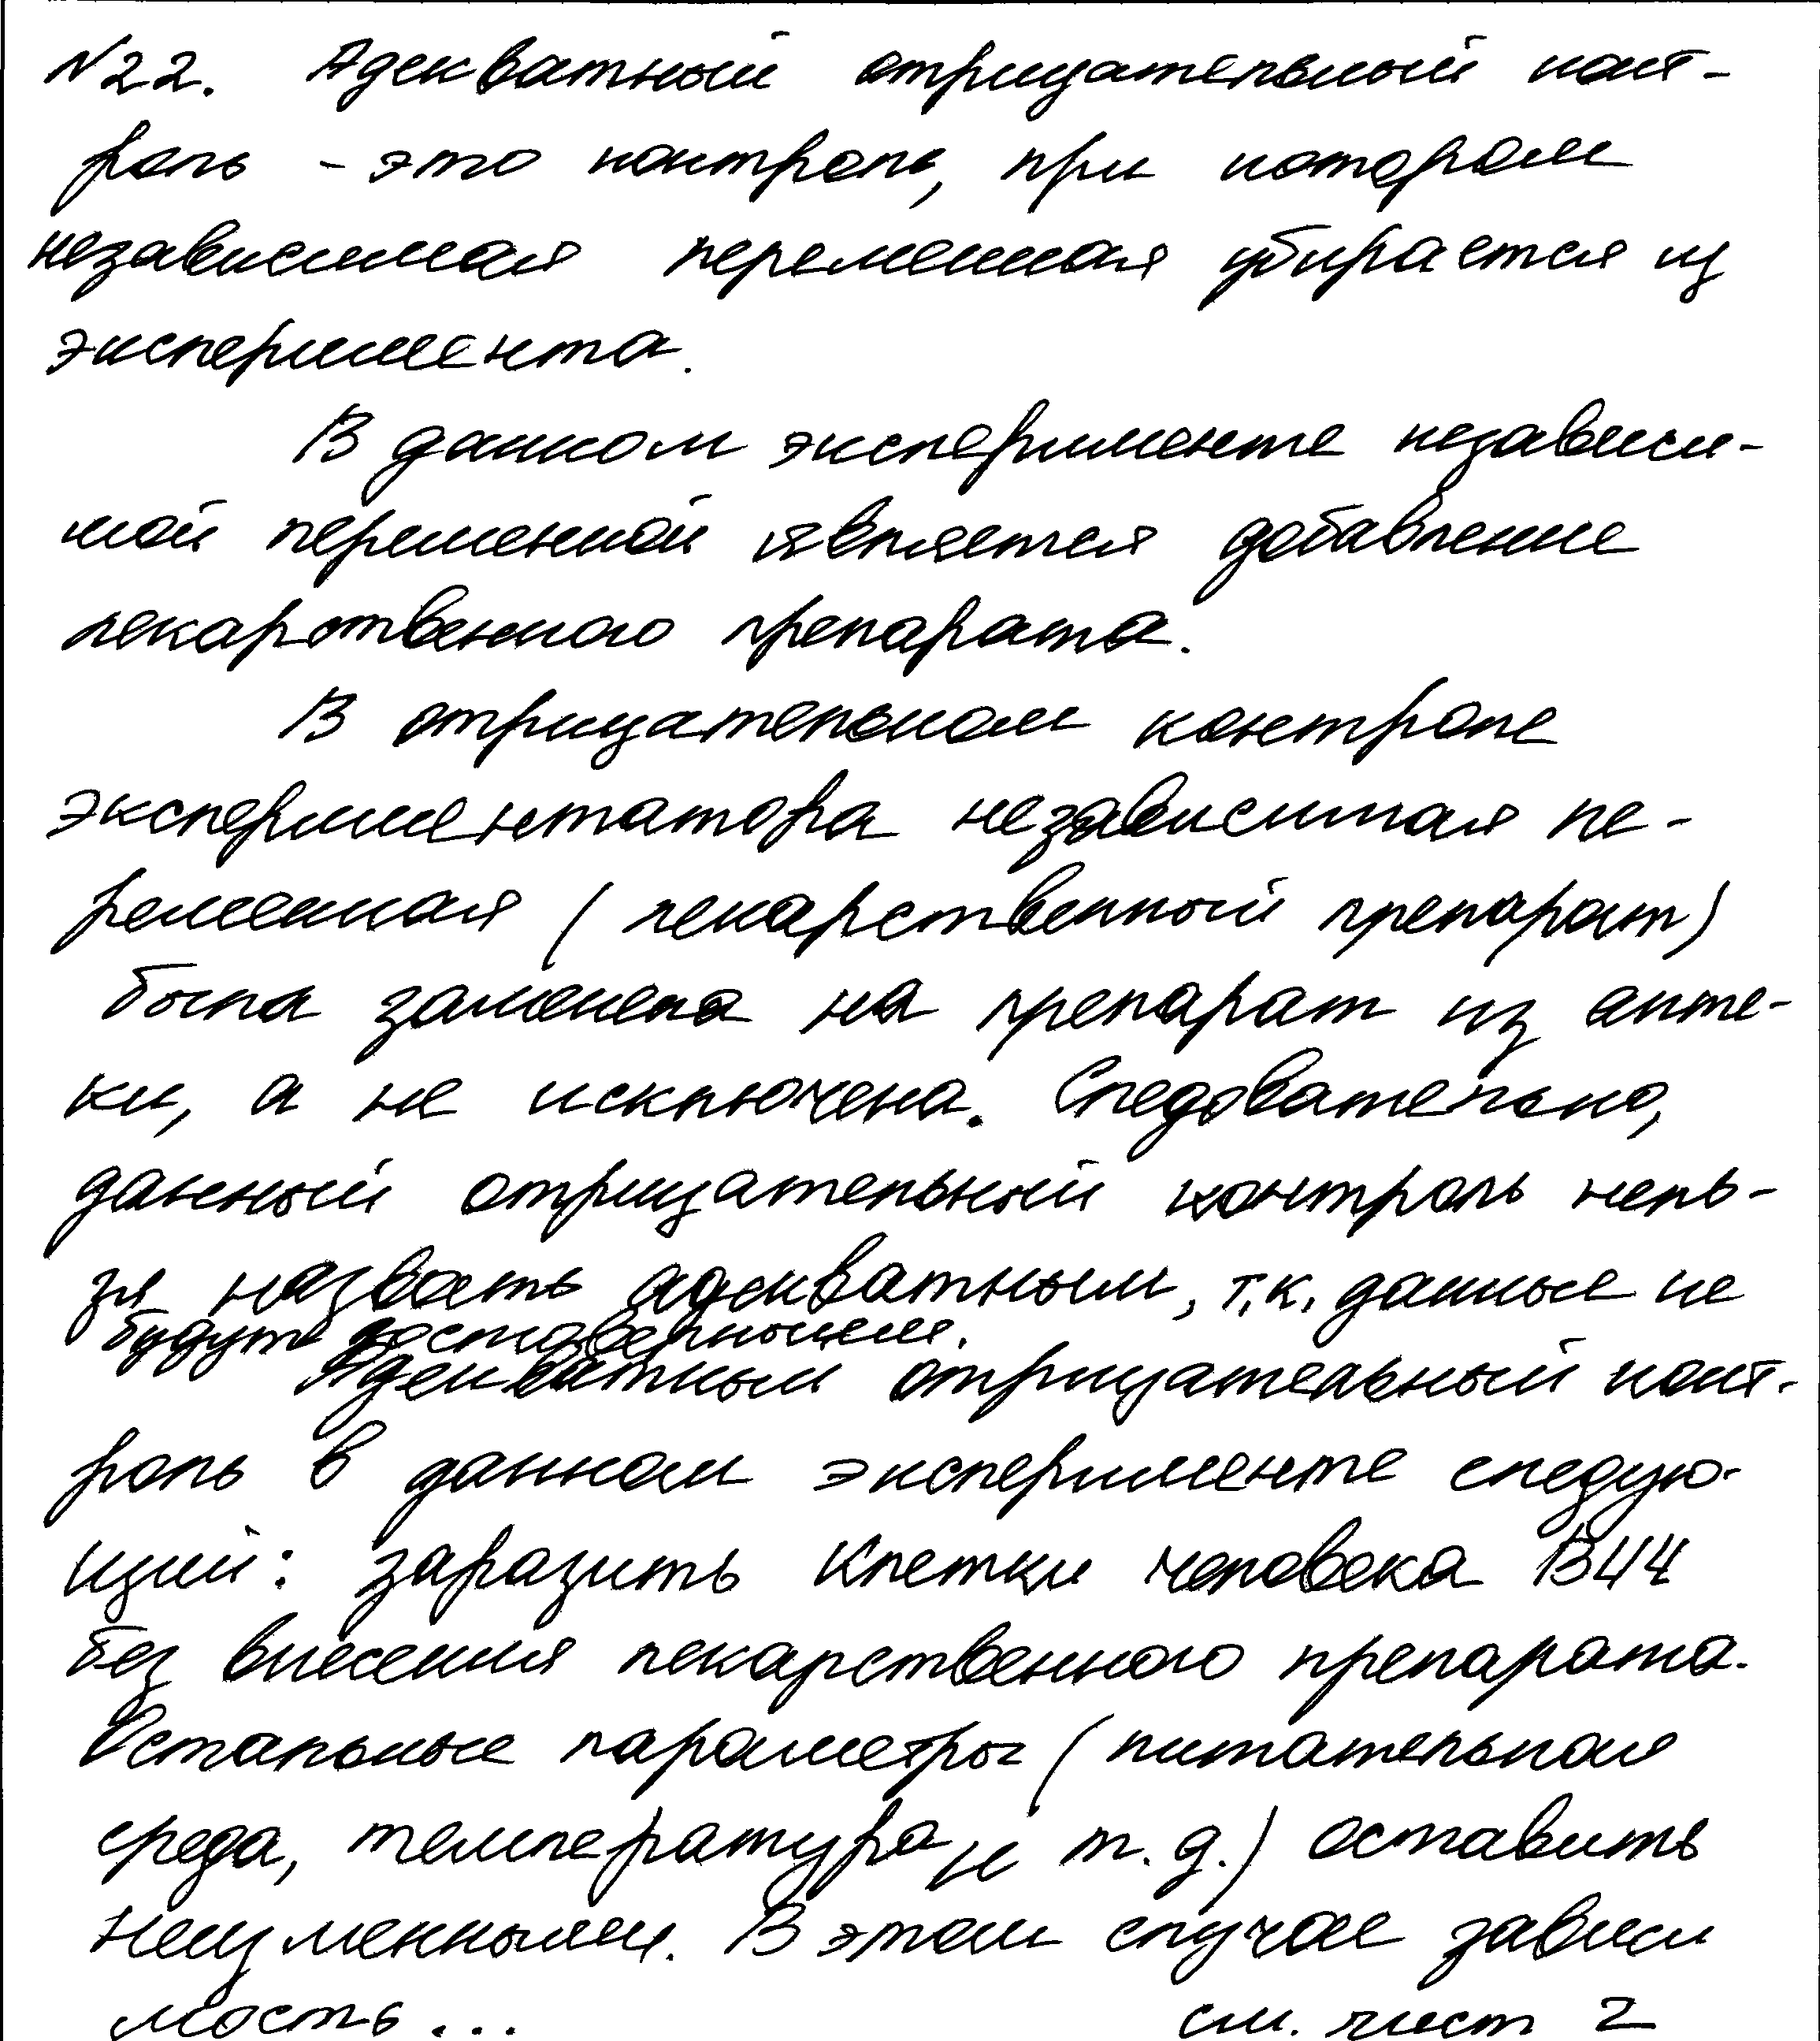 N22. Адекватный отрицательный конт-
роль - это контроль, при котором
независимая переменная убирается из
эксперимента.
В данном эксперименте независи-
мой переменной является добавление
лекарственного препарата.
В отрицательном контроле
экспериментатора независимая пе-
ременная (лекарственный препарат)
была заменена на препарат из апте-
ки, а не исключена. Следовательно,
данный отрицательный контроль нель-
зя назвать адекватным, т.к. данные не
будут достоверными.
Адекватным отрицательный конт-
роль в данном эксперименте следую-
щий: заразить клетки человека В44
без внесения лекарственного препарата.
Остальные параметры (питательная
среда, температура и т.д.) оставить
неизменными. В этом случае зависи
мость... см. лист 2